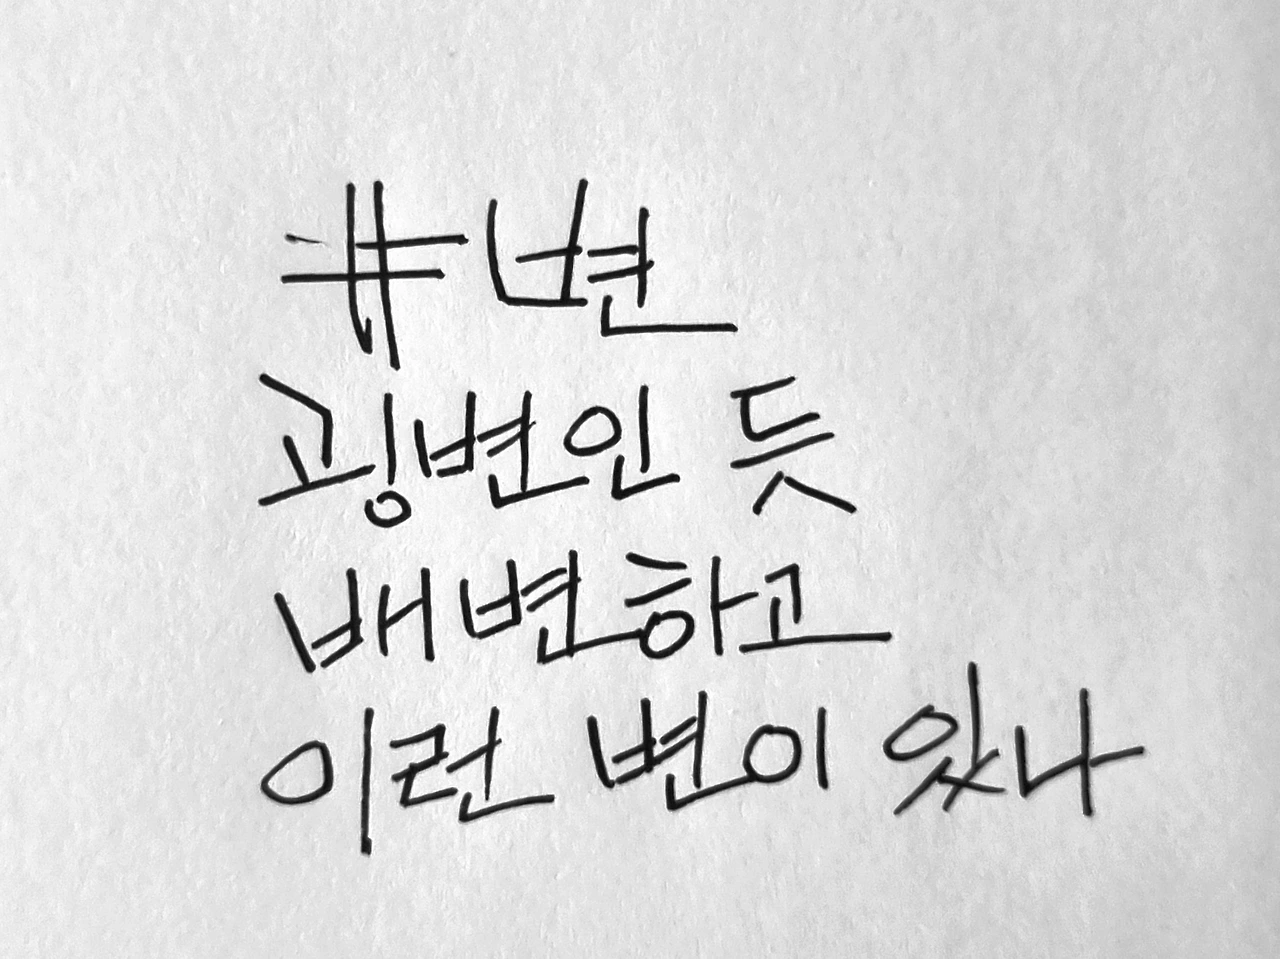 #변
굉변인 듯
배변하고
이런 변이 있나